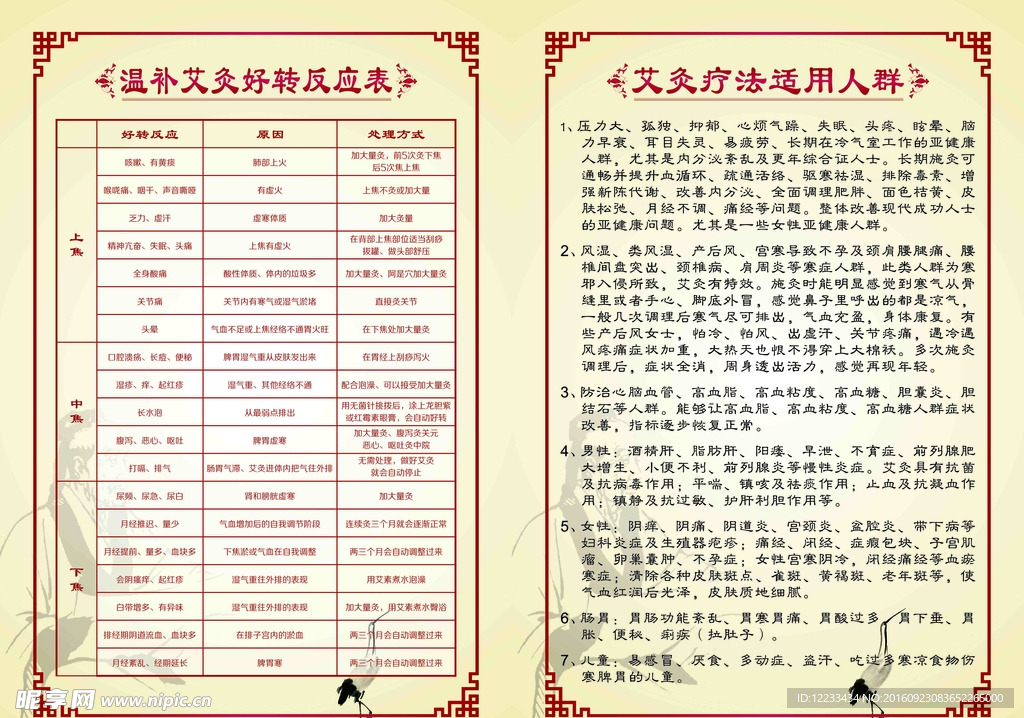 温补艾灸好转反应表
好转反应 原因 处理方式
上焦
咳嗽、有黄痰 肺部上火 加大量灸，前5次灸下焦
后5次焦上焦
喉咙痛、咽干、声音嘶哑 有虚火 上焦不灸或加大量
乏力、虚汗 虚寒体质 加大灸量
精神亢奋、失眠、头痛 上焦有虚火 在背部上焦部位适当刮痧
拔罐、做头部舒压
全身酸痛 酸性体质、体内的垃圾多 加大量灸、阿是穴加大量灸
关节痛 关节内有寒气或湿气淤堵 直接灸关节
头晕 气血不足或上焦经络不通胃火旺 在下焦处加大量灸
中焦
口腔溃疡、长痘、便秘 脾胃湿气重从皮肤发出来 在胃经上刮痧泻火
湿疹、痒、起红疹 湿气重、其他经络不通 配合泡澡、可以接受加大量灸
长水泡 从最弱点排出 用无菌针挨拨后，涂上龙胆紫
或红霉素眼膏，会自动好转
腹泻、恶心、呕吐 脾胃虚寒 加大量灸、腹泻灸关元
恶心、呕吐灸中院
打嗝、排气 肠胃气滞、艾灸进体内把气往外排 无需处理，做好艾灸
就会自动停止
下焦
尿频、尿急、尿白 肾和膀胱虚寒 加大量灸
月经推迟、量少 气血增加后的自我调节阶段 连续灸三个月就会逐渐正常
月经提前、量多、血块多 下焦淤或气血在自我调整 两三个月会自动调整过来
会阴瘙痒、起红疹 湿气重往外排的表现 用艾素煮水泡澡
白带增多、有异味 湿气重往外排的表现 加大量灸，用艾素煮水臀浴
排经期阴道流血、血块多 在排子宫内的淤血 两三个月会自动调整过来
月经紊乱、经期延长 脾胃寒 两三个月会自动调整过来
艾灸疗法适用人群
1、压力大、孤独、抑郁、心烦气躁、失眠、头疼、眩晕、脑
力早衰、耳目失灵、易疲劳、长期在冷气室工作的亚健康
人群，尤其是内分泌紊乱及更年综合证人士。长期施灸可
通畅并提升血循环、疏通活络、驱寒祛湿、排除毒素、增
强新陈代谢、改善内分泌、全面调理肥胖、面色桔黄、皮
肤松弛、月经不调、痛经等问题。整体改善现代成功人士
的亚健康问题。尤其是一些女性亚健康人群。
2、风湿、类风湿、产后风、宫寒导致不孕及颈肩腰腿痛、腰
椎间盘突出、颈椎病、肩周炎等寒症人群，此类人群为寒
邪入侵所致，艾灸有特效。施灸时能明显感觉到寒气从骨
缝里或者手心、脚底外冒，感觉鼻子里呼出的都是凉气，
一般几次调理后寒气尽可排出，气血充盈，身体康复。有
些产后风女士，怕冷、怕风、出虚汗、关节疼痛，遇冷遇
风疼痛症状加重，大热天也恨不得穿上大棉袄。多次施灸
调理后，症状全消，周身透出活力，感觉再现年轻。
3、防治心脑血管、高血脂、高血粘度、高血糖、胆囊炎、胆
结石等人群。能够让高血脂、高血粘度、高血糖人群症状
改善，指标逐步恢复正常。
4、男性：酒精肝、脂肪肝、阳痿、早泄、不育症、前列腺肥
大增生、小便不利、前列腺炎等慢性炎症。艾灸具有抗菌
及抗病毒作用；平喘、镇咳及祛痰作用；止血及抗凝血作
用；镇静及抗过敏、护肝利胆作用等。
5、女性：阴痒、阴痛、阴道炎、宫颈炎、盆腔炎、带下病等
妇科炎症及生殖器疱疹；痛经、闭经、症瘕包块、子宫肌
瘤、卵巢囊肿、不孕症；女性宫寒阴冷，闭经痛经等血瘀
寒症；清除各种皮肤斑点、雀斑、黄褐斑、老年斑等，使
气血红润后光泽，皮肤质地细腻。
6、肠胃：胃肠功能紊乱、胃寒胃痛、胃酸过多、胃下垂、胃
胀、便秘、痢疾（拉肚子）。
7、儿童：易感冒、厌食、多动症、盗汗、吃过多寒凉食物伤
寒脾胃的儿童。
昵享网 www.nipic.cn
ID:12233434 NO:20160923083652265000